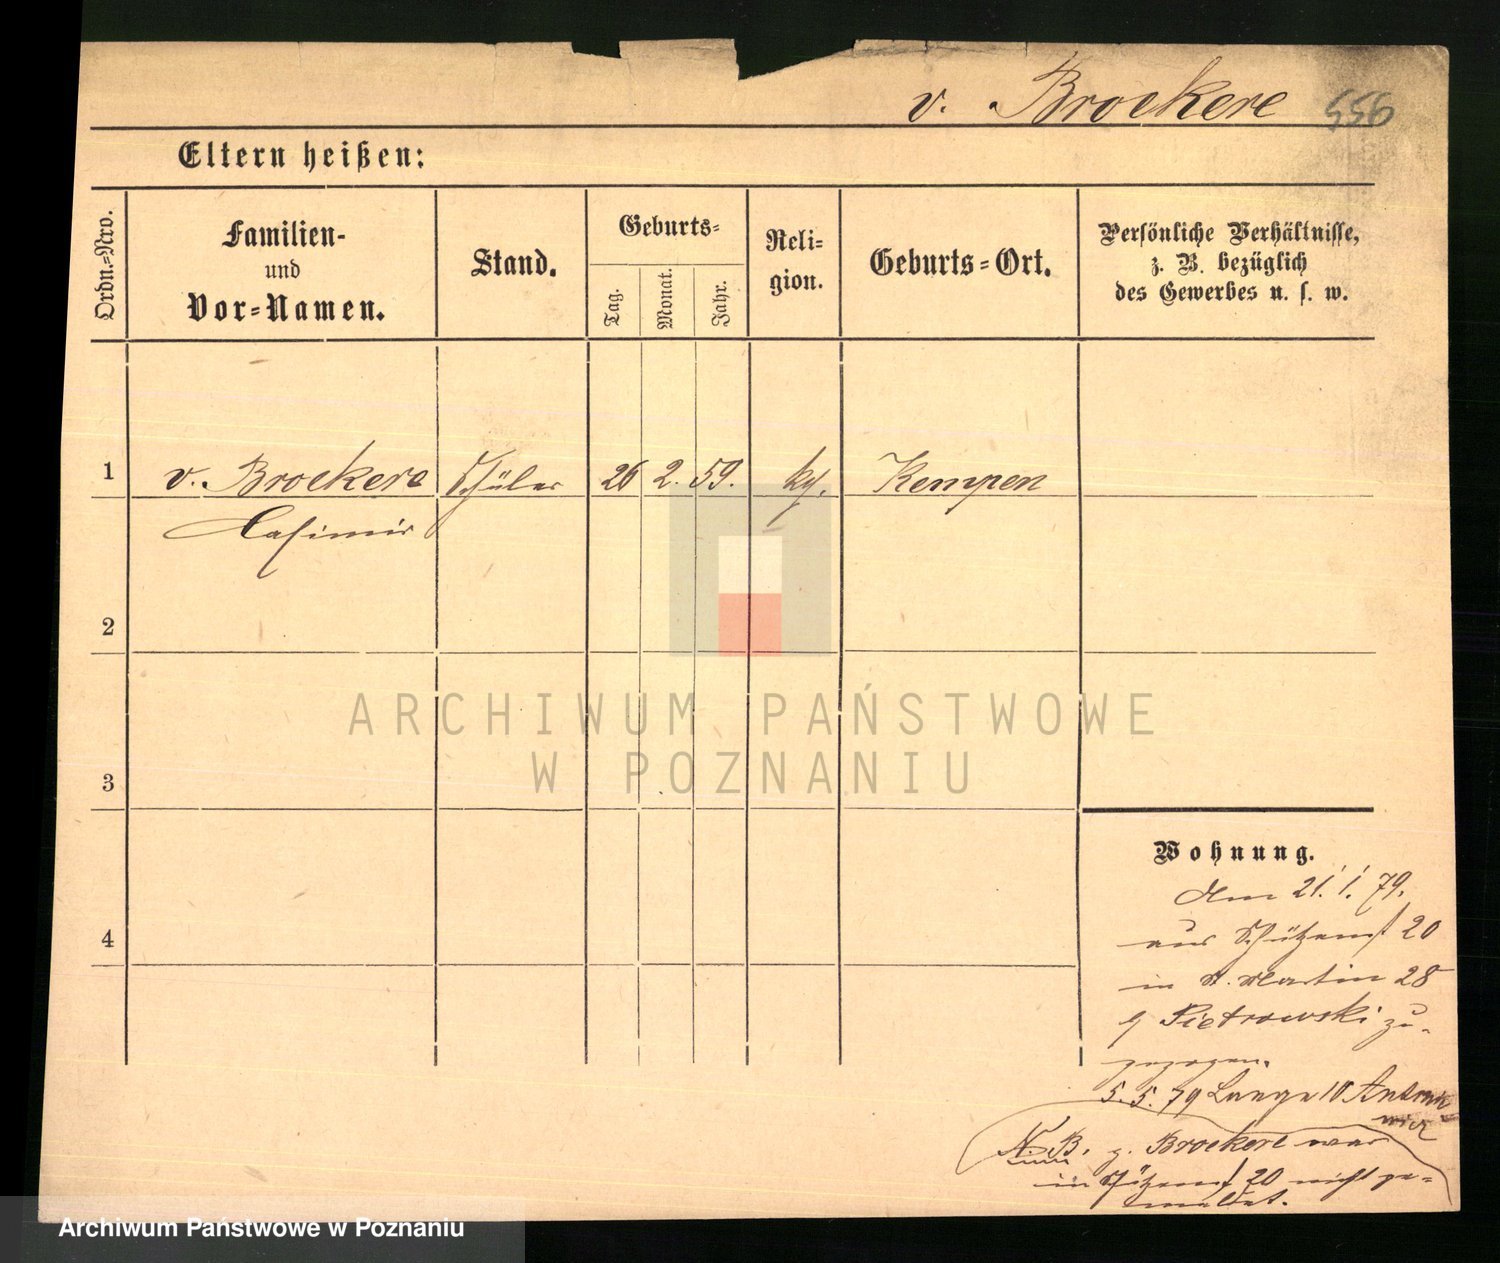 v. Broekere 556
Eltern heißen:
Ordn.=Nro.
Familien-
und
Vor=Namen.
Stand.
Geburts=
Tag.
Monat.
Jahr.
Reli=
gion.
Geburts=Ort.
Persönliche Verhältnisse,
z. B. bezüglich
des Gewerbes u. s. w.
1 v. Broekere Schüler 26 2. 59. Kempen
Casimir
2
ARCHIWUM PAŃSTWOWE
W POZNANIU
3
Wohnung.
Am 21. 1. 79.
aus Schützenst 20
4
in St. Martin 28
Pietrowski zu-
gezogen.
5. 5. 79 Lange 10
N.B. Broekere war
in Schützenst 20 nicht ge-
meldet.
Archiwum Państwowe w Poznaniu